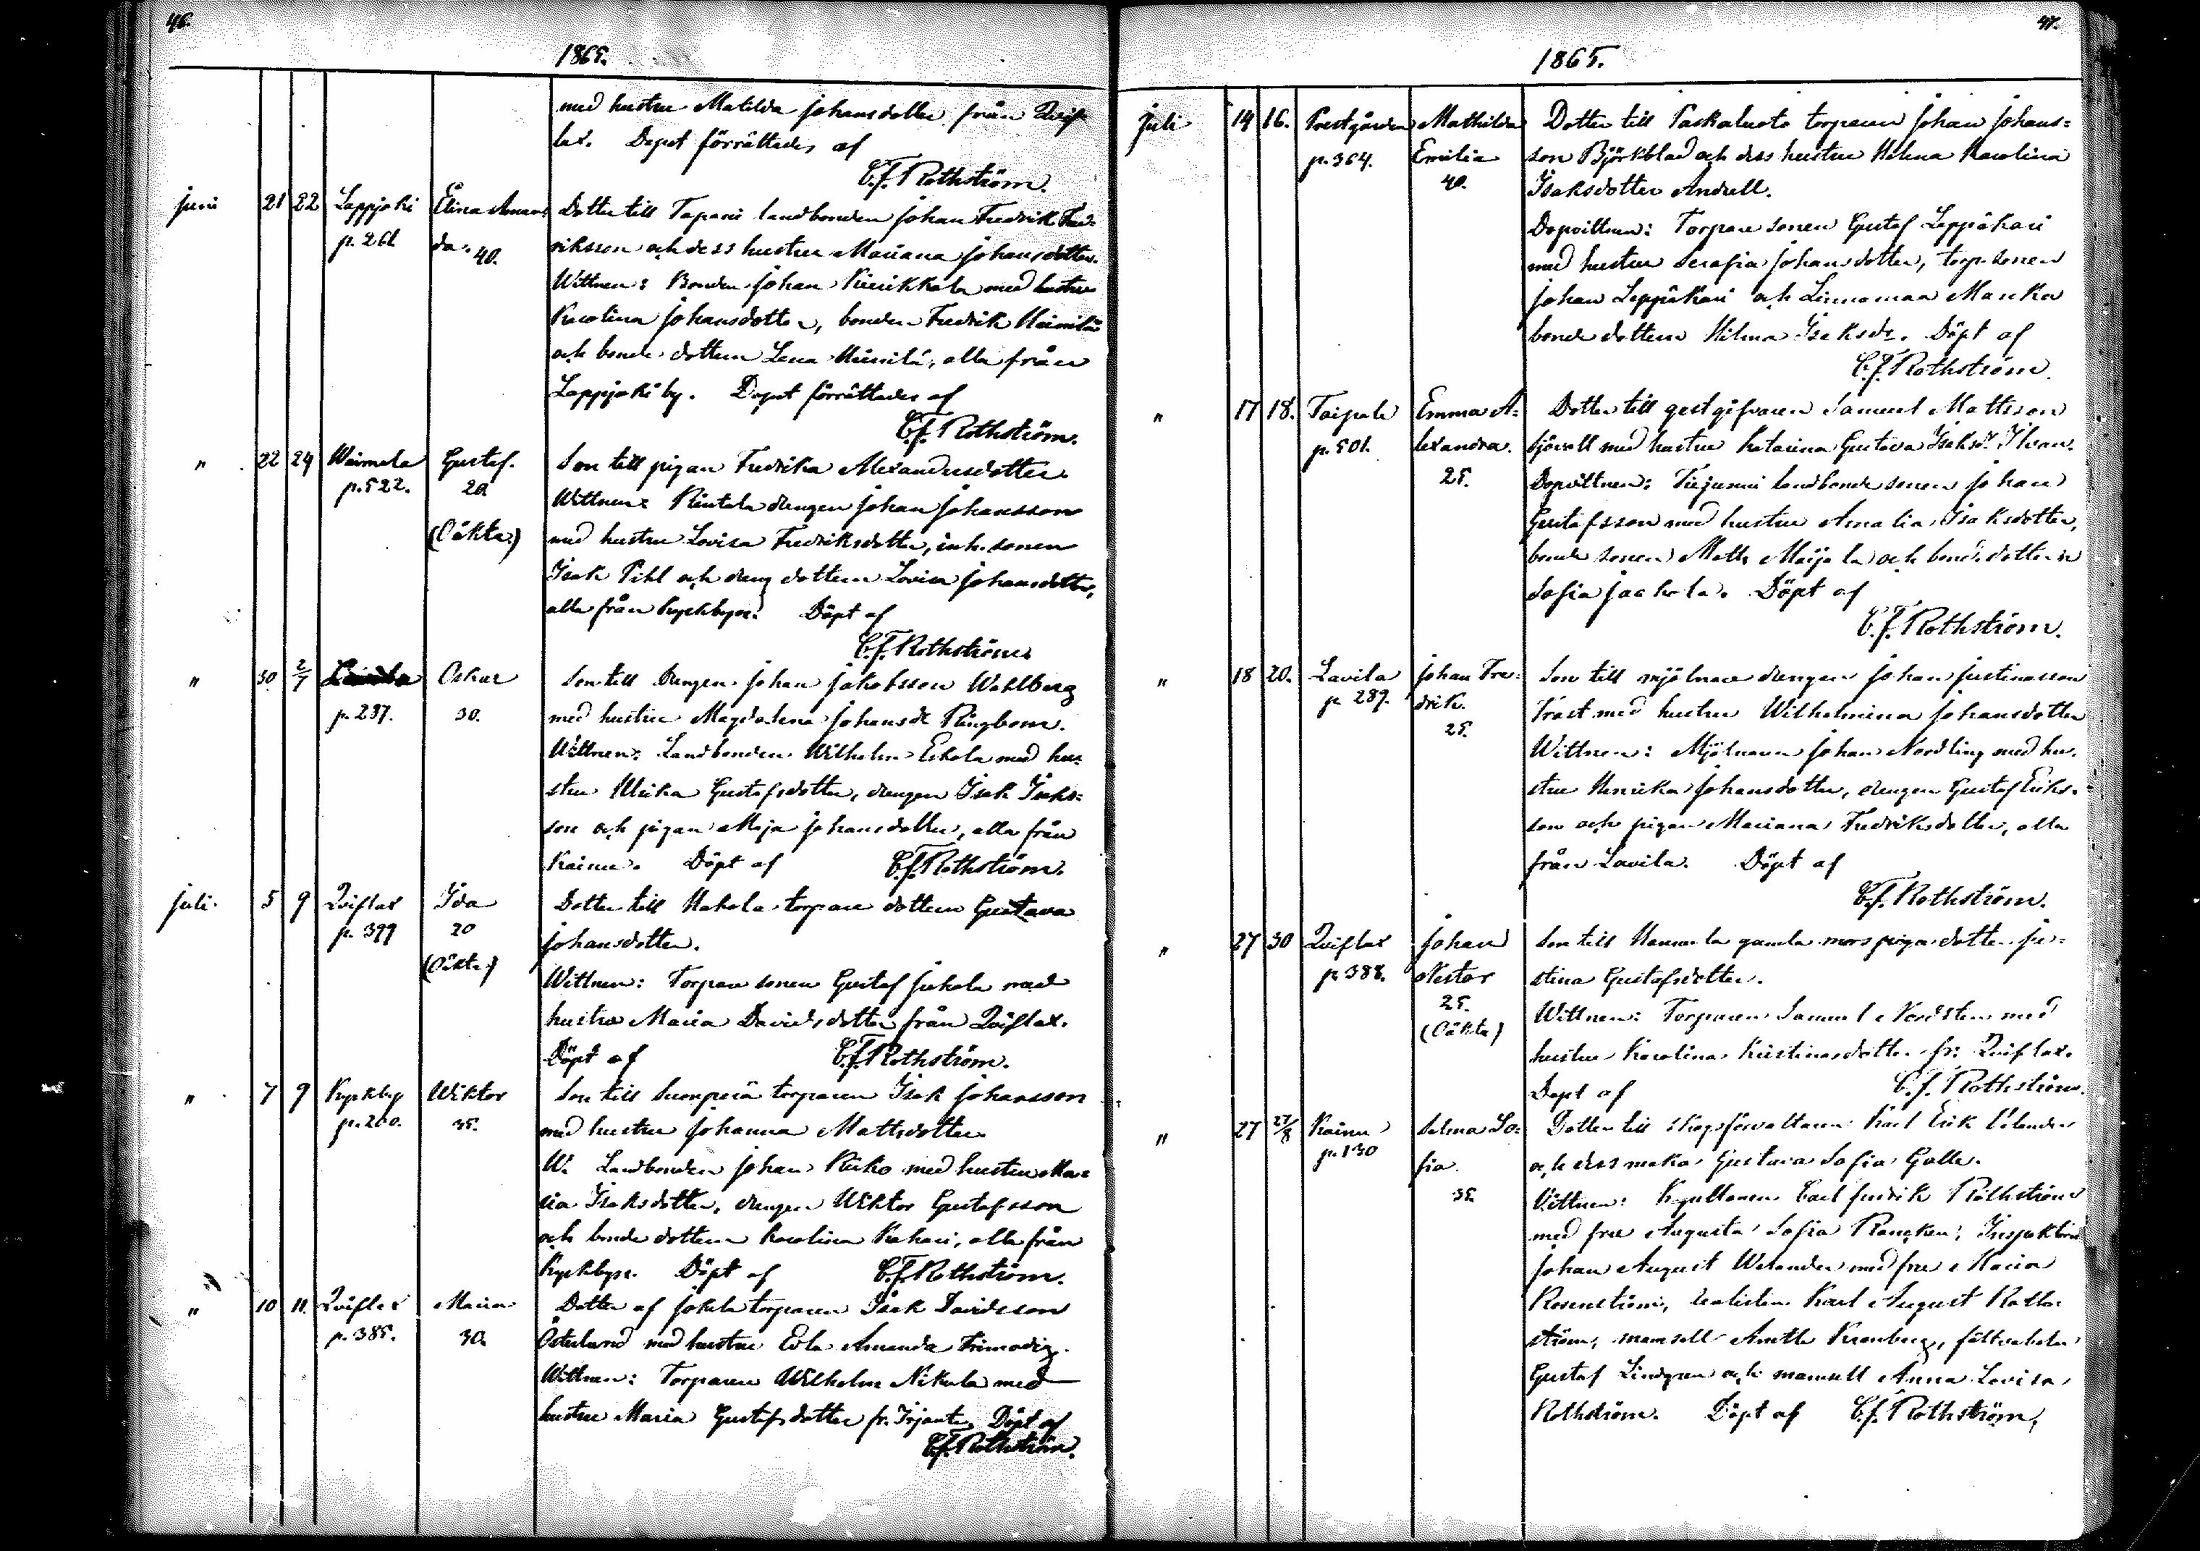 46.
1865.
med hustru Matilda Johansdotter från Qvif-
lax. Dopet förrättades af
C.f. Rothström.
Juni 21 22 Lappjoki Elina Aman- Dotter till Tapani landbonden Johan Fredrik Fred-
p. 261 da. 40. riksson och dess hustru Mariana Johansdotter.
Wittnen: Bonden Johan Kierikkala med hustru
Karolina Johansdotter, bonden Fredrik
och bonde dottern Lena alla från
Lappjoki by. Dopet förrättades af
C.f. Rothström.
" 22 24 Gustaf. Son till pigan Fredrika Alexandersdotter
p. 522. 20 Wittnen: Rintala drengen Johan Johansson
(Oäkta) med hustru Lovisa Fredriksdotter, inh. sonen
Isak Pihl och dreng dottern Lovisa Johansdotter,
alla från Kyrkbyn. Döpt af
C.f. Rothström.
" 30 2/7 Oskar Son till Drengen Johan Jakobsson Wahlberg
p. 237. 30. med hustru Magdalena Johansdr Ringbom.
Wittnen: Landbonden Wilhelm Eskola med hu-
stru Ulrika Gustafsdotter, drengen Isak Isaks-
son och pigan Maja Johansdotter, alla från
Kainu. Döpt af C.f. Rothström.
Juli. 5 9 Qviflax Ida Dotter till Hakola torpare dottern Gustava
p. 399 20 Johansdotter.
(Oäkta) Wittnen: Torpare sonen Gustaf Jakola med
hustru Maria Davidsdotter från Qviflax.
Döpt af C.f. Rothström.
" 7 9 Kyrkby Wiktor Son till Suonperä torparen Isak Johansson
p. 200. 35. med hustru Johanna Mattsdotter.
W. Landbonden Johan med hustru Ma-
ria Isaksdotter, drengen Wiktor Gustafsson
och bonde dottern Karolina Kahari, alla från
Kyrkbyn. Döpt af C.f. Rothström.
" 10 11. Qviflax Maria Dotter af Jakola torparen Isak Davidsson
p. 385. 30. Österlund med hustru Eva Amanda Frimodig.
Wittnen: Torparen Wilhelm Nikula med
hustru Maria Gustafsdotter fr. Irjanta. Döpt af
C.f. Rothström.
47.
1865.
Juli 14 16. Prestgården Mathilda Dotter till Paskaluoto torparen Johan Johans-
p. 364. Emilia son Björkblad och dess hustru Helena Karolina
40. Isaksdotter Andell.
Dopvittnen: Torpare sonen Gustaf Leppäkari
med hustru Serafia Johansdotter, torp. sonen
Johan Leppäkari och Linnamaa
bonde dottern Hilma Isaksdr. Döpt af
C.f. Rothström.
" 17 18. Taipale Emma A- Dotter till gestgifvaren Samuel Mattsson
p. 501. lexandra. Sjövall med hustru Katarina Gustava Isaksdr
25. Dopvittnen: landbonde sonen Johan
Gustafsson med hustru Amalia Isaksdotter,
bonde sonen Matts Maijala och bonde dottern
Sofia Jaakola. Döpt af
C.f. Rothström.
" 18 20. Lavila Johan Fre- Son till mjölnare drengen Johan Justinasson
p. 289. drik. Trast med hustru Wilhelmina Johansdotter
25. Wittnen: Mjölnaren Johan Nordling med hu-
stru Henrika Johansdotter, drengen Gustaf Eriks-
son och pigan Mariana Fredriksdotter, alla
från Lavila. Döpt af
C.f. Rothström.
" 27 30 Qviflax Johan Son till Hannula gamla mors piga dotter Ju-
p. 388. Nestor stina Gustafsdotter.
25. Wittnen: Torparen Samuel Nordsten med
(Oäkta) hustru Karolina Kristinasdotter fr. Qviflax.
Döpt af C.f. Rothström.
" 27 27/8 Kainu Selma So- Dotter till skogsförvaltaren Karl Erik
p. 130 fia. och dess maka Gustava Sofia Galle.
35. Vittnen: Kapellanen Carl Fredrik Rothström
med fru Augusta Sofia Rancken, Inspektoren
Johan August Welander med fru Maria
Rosenström, Karl August Roth-
ström, mamsell Kronberg, fältväbeln
Gustaf Lindgren och mamsell Anna Lovisa
Rothström. Döpt af C.f. Rothström.